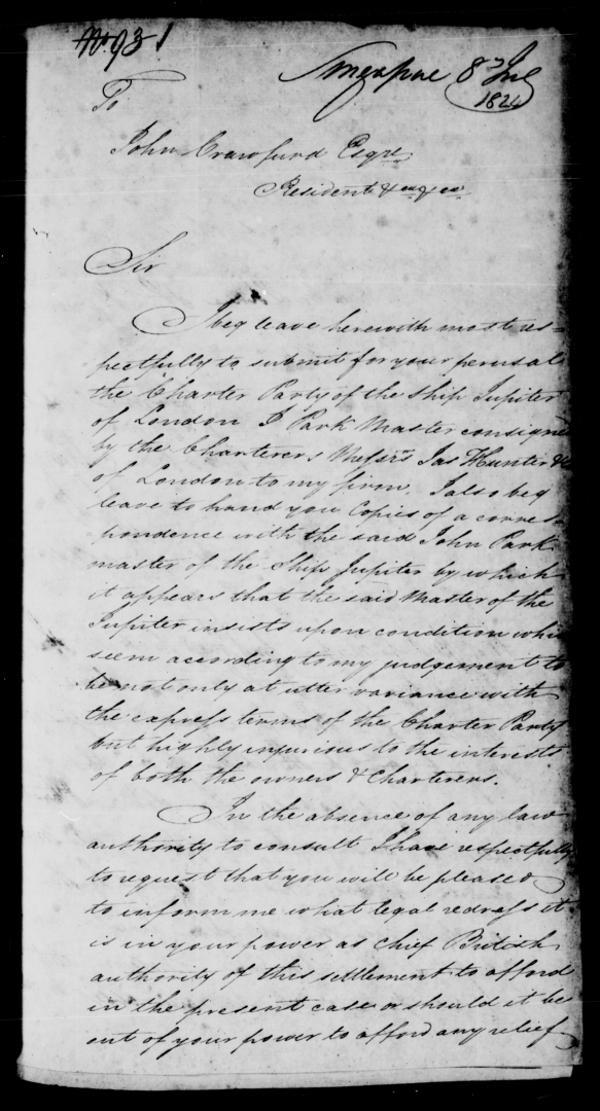 No. 93 1
Singapore 8th
1824
To
John Crawfurd Esqre
Resident &ca &ca
Sir
I beg leave herewith most res=
pectfully to submit for your perusal
the Charter Party of the Ship Jupiter
of London J Park Master consigned
by the Charterers Messrs Jas Hunter &
of London to my firm. I also beg
leave to hand you Copies of a corres=
pondence with the said John Park
master of the Ship Jupiter by which
it appears that the said Master of the
Jupiter insists upon condition whi
seem according to my judgement to
be not only at utter variance with
the express terms of the Charter Party
but highly injurious to the interests
of both the owners & Charterers.
In the absence of any law
authority to consult I have respectfully
to request that you will be pleased
to inform me what legal redress it
is in your power as Chief British
authority of this settlement to afford
in the present case or should it be
out of your power to afford any relief